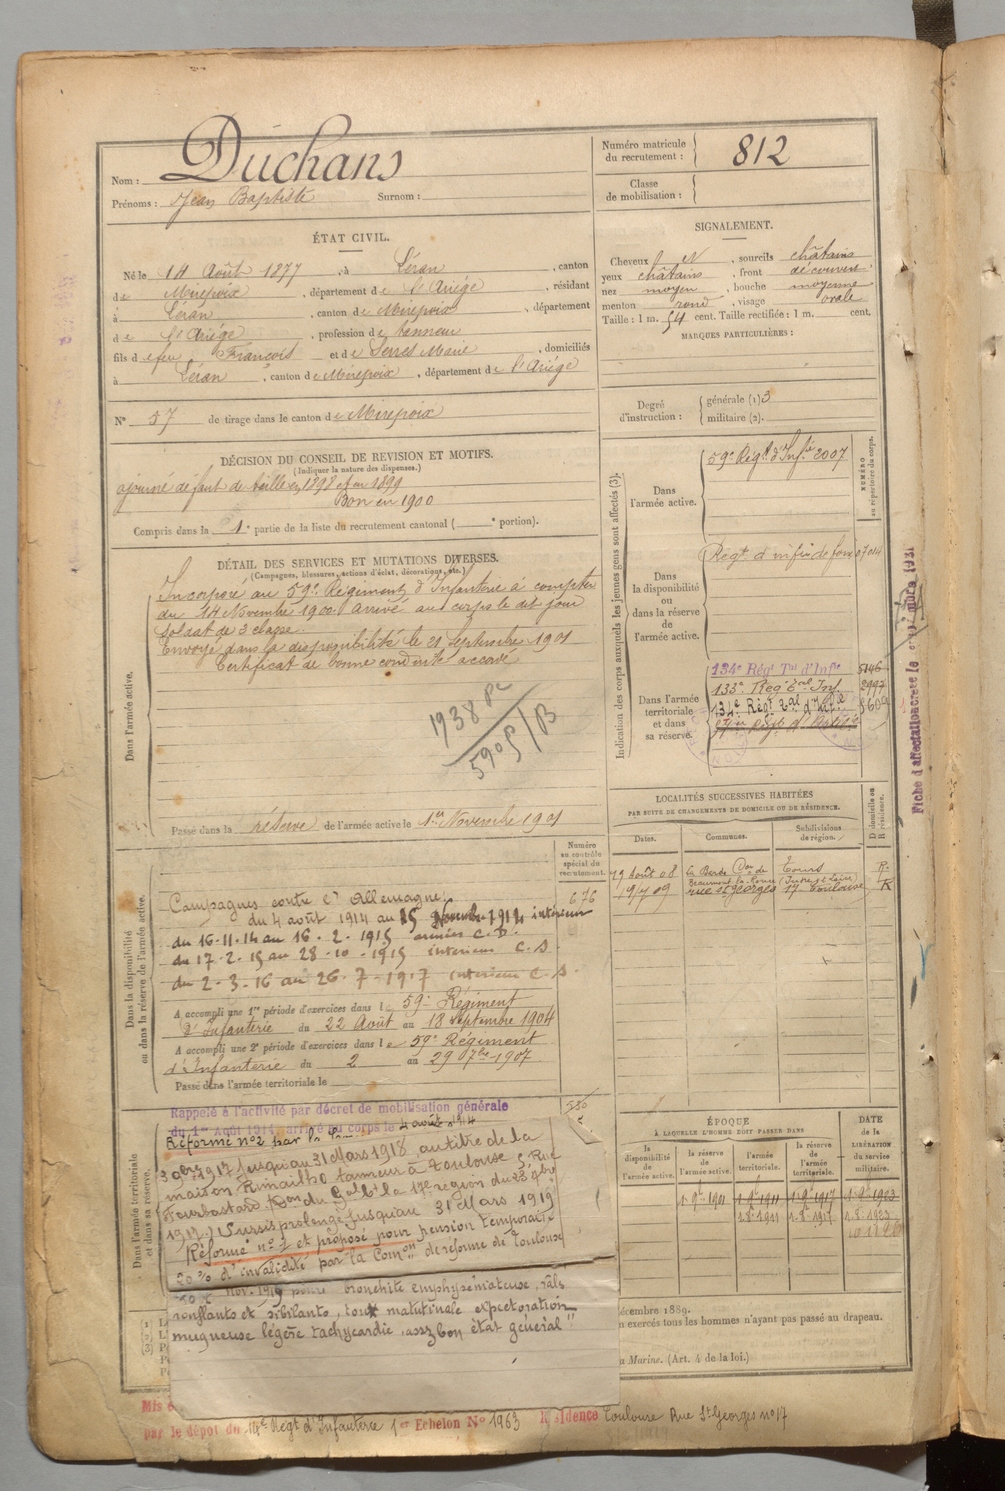 Nom : Duchans
Prénoms : Jean Baptiste Surnom :
Numéro matricule du recrutement : 812
Classe de mobilisation :
ÉTAT CIVIL.
Né le 14 Août 1877, à Léran, canton
de Mirepoix, département de l'Ariége, résidant
à Léran, canton de Mirepoix, département
de l'Ariége, profession de tanneur
fils de feu François et de Serres Marie, domiciliés
à Léran, canton de Mirepoix, département de l'Ariége
N° 57 de tirage dans le canton de Mirepoix
SIGNALEMENT.
Cheveux N, sourcils châtains
yeux châtains, front découvert
nez moyen, bouche moyenne
menton rond, visage ovale
Taille : 1 m. 54 cent. Taille rectifiée : 1 m. cent.
MARQUES PARTICULIÈRES :
Degré d'instruction : générale (1) 3
militaire (2).
DÉCISION DU CONSEIL DE REVISION ET MOTIFS.
(Indiquer la nature des dispenses.)
ajourné défaut de taille en 1898 et en 1899
Bon en 1900
Compris dans la 1e partie de la liste du recrutement cantonal ( e portion).
DÉTAIL DES SERVICES ET MUTATIONS DIVERSES.
(Campagnes, blessures, actions d'éclat, décorations, etc.)
Dans l'armée active.
Incorporé au 59e Régiment d'Infanterie à compter
du 14 Novembre 1900. arrivé au corps le dit jour
Soldat de 2 classe.
Envoyé dans la disponibilité le 21 Septembre 1901
Certificat de bonne conduite accordé
1938
590
Passé dans la réserve de l'armée active le 1er Novembre 1901
Indication des corps auxquels les jeunes gens sont affectés (3).
NUMÉRO au répertoire du corps.
Dans l'armée active.
59e Régt d'Infie 2007
Dans la disponibilité ou dans la réserve de l'armée active.
Régt d'infie de foix 07014
Dans l'armée territoriale et dans sa réserve.
134e Régt Tal d'Infie 5146
133e Régt Tal Inf. 2997
134e Régt Tal d'Infie 5609
LOCALITÉS SUCCESSIVES HABITÉES
PAR SUITE DE CHANGEMENTS DE DOMICILE OU DE RÉSIDENCE.
Dates. Communes. Subdivisions de région. D domicile ou R résidence.
29 août 08 Tours R.
(Indre et Loire)
19/7 09 rue St georges 17 Toulouse R
Fiche d'affectation créée le mars 1931
Dans la disponibilité ou dans la réserve de l'armée active.
Numéro au contrôle spécial du recrutement.
676
Campagnes contre l'Allemagne :
du 4 août 1914 au 15 Novembre 1914 intérieur
du 16-11-14 au 16-2-1915 armées C.D.
du 17-2-15 au 28-10-1915 intérieur C.S.
du 2-3-16 au 26-7-1917 intérieur C.S.
A accompli une 1re période d'exercices dans le 59e Régiment
d'Infanterie du 22 Août au 18 Septembre 1904
A accompli une 2e période d'exercices dans le 59e Régiment
d'Infanterie du 2 au 29 7bre 1907
Passé dans l'armée territoriale le
Dans l'armée territoriale et dans sa réserve.
Rappelé à l'activité par décret de mobilisation générale
du 1er Août 1914 arrivé au corps le 4 août 1914
Réformé n°2 par la
1917 jusqu'au 31 Mars 1918, au titre de la
maison Rimailho tanneur à Toulouse 5 Rue
Gal Ct la 17e région du 23 9bre
1917.) Sursis prolongé jusqu'au 31 Mars 1919
Réformé n°1 et proposé pour pension temporaire
20 % d'invalidité par la Comon de réforme de Toulouse
nov. 1919 pour bronchite emphysémateuse, râls
ronflants et sibilants, toux matutinale expectoration
muqueuse légère tachycardie, assz bon état général"
ÉPOQUE
À LAQUELLE L'HOMME DOIT PASSER DANS
la disponibilité de l'armée active. la réserve de l'armée active. l'armée territoriale. la réserve de l'armée territoriale.
DATE de la LIBÉRATION du service militaire.
1 9bre 1901 1 9bre 1911 1 9bre 1917 1 9bre 1923
écembre 1889.
n exercés tous les hommes n'ayant pas passé au drapeau.
Marine. (Art. 4 de la loi.)
Mis e
par le dépôt du 14e Régt d'Infanterie 1er Echelon N° 1963 Résidence Toulouse Rue St Georges n°17